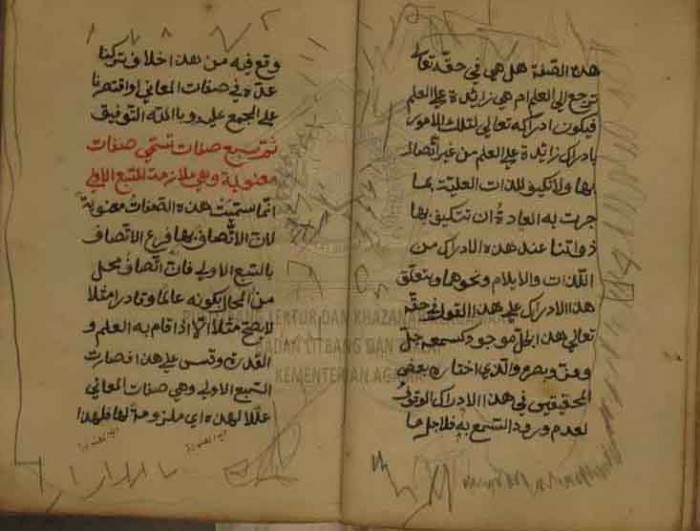 هذه الصفة هل هي في حقه تعالى
ترجع الى العلم ام هي زائدة على العلم
فيكون ادراكه تعالى لتلك الامور
بادراك زائدة على العلم من غير اتصال
بها ولا تكيف للذات العلية بما
جرت به العادة ان تتكيف بها
ذواتنا عند هذه الادراك من
اللذات والايلام ونحوها ويتعلق
هذا الادراك على هذا القول في حق
تعالى هذا بكل موجود كسمعه جل
وعز وبصره والذي اختاره بعض
المحققين في هذا الادراك الوقوف
لعدم ورود السمع به فلاجل ما
وقع فيه من هذا اخلاف تركنا
عده في صفات المعاني واقتصرنا
على المجمع عليه وبا الله التوفيق
ثم سبع صفات تستمى صفات
معنوية وهي ملازمة للسبع الاولى
انما سميت هذه الصفات معنوية
لان الاتصاف بها فرع الاتصاف
بالسبع الاولى فان اتصاف محل
من المحال بكونه عالما وقادرا مثلا
لا يصح مثلا الا اذا قام به العلم و
القدرة وقس على هذا فصارت
السبع الاولى وهي صفات المعاني
عللا لهذه اي ملزومة لها فلهذا
PUSLITBANG LEKTUR DAN KHAZANAH KEAGAMAAN
BADAN LITBANG DAN DIKLAT
KEMENTERIAN AGAMA